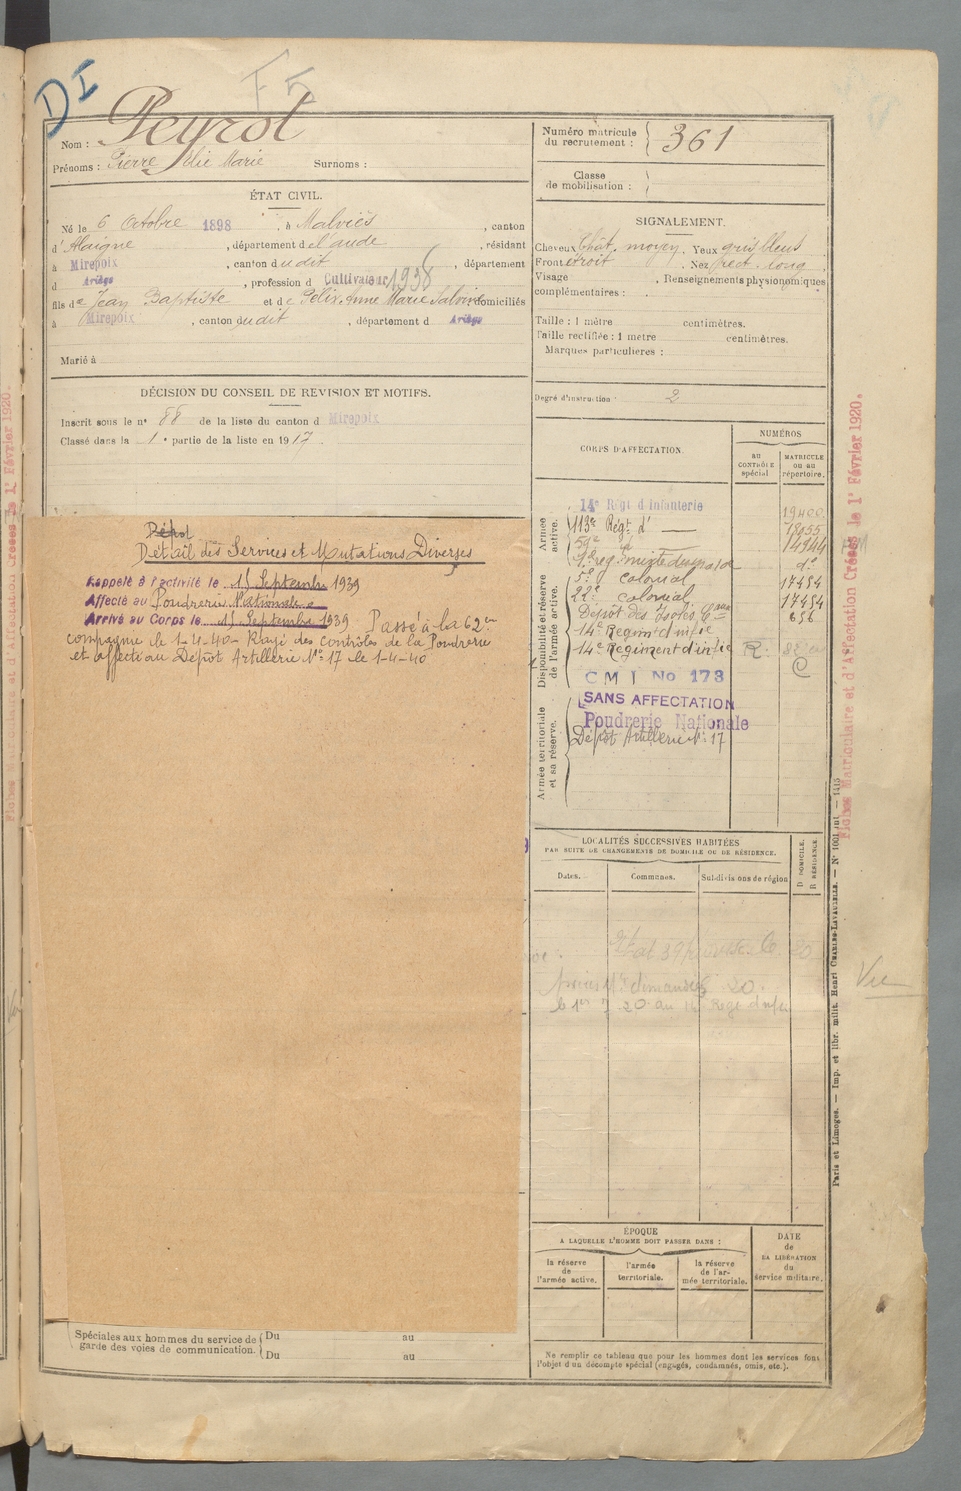 DI
F 5
Nom : Peyrot
Prénoms : Pierre Elie Marie Surnoms :
ÉTAT CIVIL.
Né le 6 Octobre 1898, à Malviès, canton
d'Alaigne, département de l'aude, résidant
à Mirepoix, canton dudit, département
d Ariège, profession d Cultivateur 1936
fils de Jean Baptiste et de Anne Marie domiciliés
à Mirepoix, canton dudit, département d Ariège
Marié à
DÉCISION DU CONSEIL DE REVISION ET MOTIFS.
Inscrit sous le n° 88 de la liste du canton d Mirepoix
Classé dans la 1e partie de la liste en 1917.
Dépôt
Détail des Services et Mutations Diverses
Rappelé à l'activité le 15 Septembre 1939
Affecté au Poudrerie Nationale
Arrivé au Corps le 15 Septembre 1939 Passé à la 62e
compagnie le 1-4-40- Rayé des contrôles de la Poudrerie
et affecté au Dépôt Artillerie N° 17 le 1-4-40
Spéciales aux hommes du service de garde des voies de communication. (Du au
(Du au
Numéro matricule du recrutement : 361
Classe de mobilisation :
SIGNALEMENT.
Cheveux Chât. moyen. Yeux gris bleus
Front étroit. Nez rect. long
Visage . Renseignements physionomiques
complémentaires :
Taille : 1 mètre centimètres.
Taille rectifiée : 1 mètre centimètres.
Marques particulières :
Degré d'instruction : 2
CORPS D'AFFECTATION.
NUMÉROS
au CONTRÔLE spécial
MATRICULE ou au répertoire.
Armée active.
14e Régt d'Infanterie 19400
113e Régt d° —
59e d°
5e colonial 17454
22e colonial 17454
Disponibilité et réserve de l'armée active.
Dépôt des Isolés Caux 656
14e Régim d'infie
14e Régiment d'infie R.
CMI No 173
SANS AFFECTATION
Poudrerie Nationale
Dépôt Artillerie N° 17
Armée territoriale et sa réserve.
LOCALITÉS SUCCESSIVES HABITÉES
PAR SUITE DE CHANGEMENTS DE DOMICILE OU DE RÉSIDENCE.
Dates. Communes. Subdivisions de région
D DOMICILE. R RÉSIDENCE.
ÉPOQUE
A LAQUELLE L'HOMME DOIT PASSER DANS :
la réserve de l'armée active.
l'armée territoriale.
la réserve de l'armée territoriale.
DATE de LA LIBÉRATION du service militaire.
Ne remplir ce tableau que pour les hommes dont les services font
l'objet d'un décompte spécial (engagés, condamnés, omis, etc.).
Fiches Matriculaire et d'Affectation Créées le 1er Février 1920.
Vu
Paris et Limoges. — Imp. et libr. milit. Henri CHARLES-LAVAUZELLE. — N° 1001